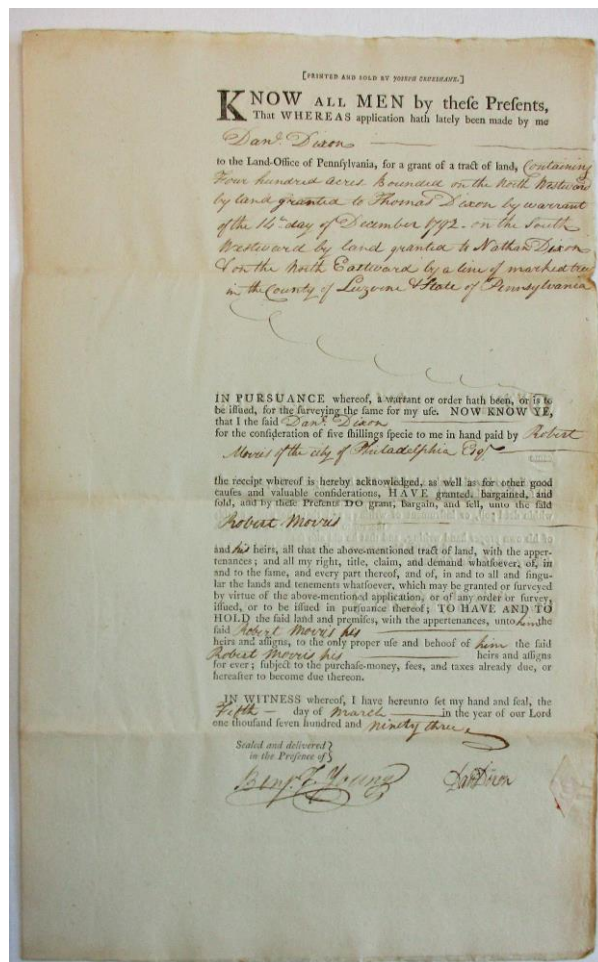 [PRINTED AND SOLD BY JOSEPH CRUKSHANK.]
KNOW ALL MEN by theſe Preſents,
That WHEREAS application hath lately been made by me
Danl. Dixon
to the Land-Office of Pennſylvania, for a grant of a tract of land, Containing
Four hundred Acres Bounded on the North Westward
by land granted to Thomas Dixon by warrant
of the 14th day of December 1792. on the South
Westward by land granted to Nathan Dixon
& on the North Eastward by a line of marked trees
in the County of Luzerne & State of Pennsylvania
IN PURSUANCE whereof, a warrant or order hath been, or is to
be iſſued, for the ſurveying the ſame for my uſe. NOW KNOW YE,
that I the ſaid Danl. Dixon
for the conſideration of five ſhillings ſpecie to me in hand paid by Robert
Morris of the city of Philadelphia Esqr
the receipt whereof is hereby acknowledged, as well as for other good
cauſes and valuable conſiderations, HAVE granted, bargained, and
ſold, and by theſe Preſents DO grant, bargain, and ſell, unto the ſaid
Robert Morris
and his heirs, all that the above-mentioned tract of land, with the apper-
tenances; and all my right, title, claim, and demand whatſoever, of, in
and to the ſame, and every part thereof, and of, in and to all and ſingu-
lar the lands and tenements whatſoever, which may be granted or ſurveyed
by virtue of the above-mentioned application, or of any order or ſurvey,
iſſued, or to be iſſued in purſuance thereof; TO HAVE AND TO
HOLD the ſaid land and premiſes, with the appertenances, unto him the
ſaid Robert Morris his
heirs and aſſigns, to the only proper uſe and behoof of him the ſaid
Robert Morris his heirs and aſſigns
for ever; ſubject to the purchaſe-money, fees, and taxes already due, or
hereafter to become due thereon.
IN WITNESS whereof, I have hereunto ſet my hand and ſeal, the
Fifth day of March in the year of our Lord
one thouſand ſeven hundred and ninety three.
Sealed and delivered
in the Preſence of
Benj. F. Young Danl Dixon